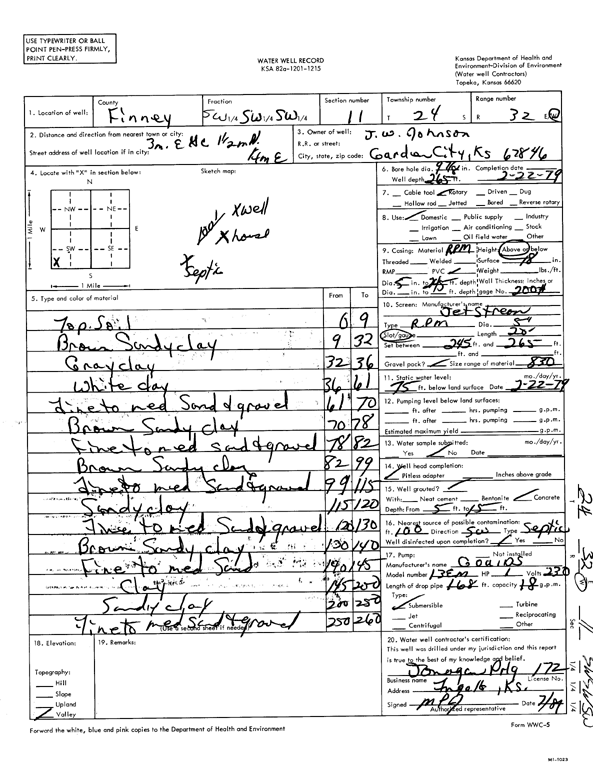 USE TYPEWRITER OR BALL
POINT PEN-PRESS FIRMLY,
PRINT CLEARLY.
WATER WELL RECORD
KSA 82a-1201-1215
Kansas Department of Health and
Environment-Division of Environment
(Water well Contractors)
Topeka, Kansas 66620
1. Location of well: County Finney Fraction SW 1/4 SW 1/4 SW 1/4 Section number 11 Township number T 24 S Range number R 32 E W
2. Distance and direction from nearest town or city: 3m. E
Street address of well location if in city:
3. Owner of well: J.W. Johnson
R.R. or street:
City, state, zip code: Garden City, Ks 67846
4. Locate with "X" in section below:
Sketch map:
N
NW NE
W E
SW SE
X
S
1 Mile
1 Mile
X well
X house
X
Septic
5. Type and color of material From To
Top Soil 0 9
Brown Sandy clay 9 32
Gray clay 32 36
White clay 36 61
Fine to med Sand & gravel 61 70
Brown Sandy clay 70 78
Fine to med sand & gravel 78 82
Brown Sandy clay 82 99
Fine to med Sand & gravel 99 115
Sandy clay 115 120
Fine to med Sand & gravel 120 130
Brown Sandy clay 130 140
Fine to med Sand 140 145
Clay 145 200
Sandy clay 200 250
Fine to med sand & gravel 250 260
(Use a second sheet if needed)
6. Bore hole dia. in. Completion date
Well depth 265 ft. 2-22-79
7. Cable tool Rotary Driven Dug
Hollow rod Jetted Bored Reverse rotary
8. Use: Domestic Public supply Industry
Irrigation Air conditioning Stock
Lawn Oil field water Other
9. Casing: Material RPM Height: Above or below
Threaded Welded Surface 18 in.
RMP PVC Weight lbs./ft.
Dia. 5 in. to 245 ft. depth Wall Thickness: inches or
Dia. in. to ft. depth gage No. 200#
10. Screen: Manufacturer's name
Jet Stream
Type RPM Dia. 5"
Slot/gauze Length 20'
Set between 245 ft. and 265 ft.
ft. and ft.
Gravel pack? Size range of material 830
11. Static water level: mo./day/yr.
75 ft. below land surface Date 2-22-79
12. Pumping level below land surfaces:
ft. after hrs. pumping g.p.m.
ft. after hrs. pumping g.p.m.
Estimated maximum yield g.p.m.
13. Water sample submitted: mo./day/yr.
Yes No Date
14. Well head completion:
Pitless adapter Inches above grade
15. Well grouted?
With: Neat cement Bentonite Concrete
Depth: From 5 ft. to 15 ft.
16. Nearest source of possible contamination:
ft. 100 Direction SW Type Septic
Well disinfected upon completion? Yes No
17. Pump: Not installed
Manufacturer's name Goulds
Model number HP 1 Volts 230
Length of drop pipe 168 ft. capacity 18 g.p.m.
Type:
Submersible Turbine
Jet Reciprocating
Centrifugal Other
18. Elevation:
19. Remarks:
Topography:
Hill
Slope
Upland
Valley
20. Water well contractor's certification:
This well was drilled under my jurisdiction and this report
is true to the best of my knowledge and belief.
172
Business name License No.
Address Ingalls, Ks.
Signed Date
Authorized representative
Forward the white, blue and pink copies to the Department of Health and Environment
Form WWC-5
24
32
E W
Sec 11
1/4 1/4 1/4
SW SW SW
M1-1023